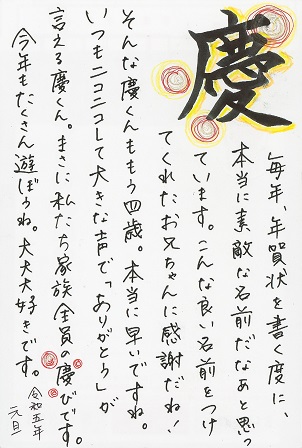 慶
毎年、年賀状を書く度に、
本当に素敵な名前だなぁと思っ
ています。こんな良い名前をつけ
てくれたお兄ちゃんに感謝だね!
そんな慶くんももう四歳。本当に早いですね。
いつもニコニコして大きな声で「ありがとう」が
言える慶くん。まさに私たち家族全員の慶びです。
今年もたくさん遊ぼうね。犬犬犬好きです。
令和五年
元旦